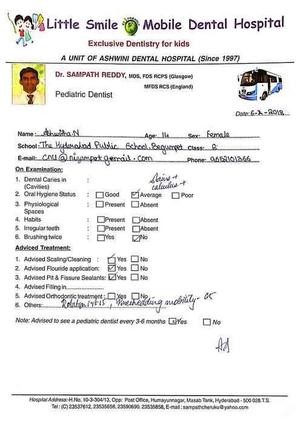 Little Smile Mobile Dental Hospital
Exclusive Dentistry for kids
A UNIT OF ASHWINI DENTAL HOSPITAL (Since 1997)
Dr. SAMPATH REDDY, MDS, FDS RCPS (Glasgow)
MFDS RCS (England)
Pediatric Dentist
Date: 6-2-2018
Name: N Age: 14 Sex: Female
School: The Hyderabad Public School, Begumpet Class: 8
E-mail: Phone:
On Examination:
1. Dental Caries in (Cavities) calculus +
2. Oral Hygiene Status Good Average Poor
3. Physiological Spaces Present Absent
4. Habits Present Absent
5. Irregular teeth Present Absent
6. Brushing twice Yes No
Adviced Treatment:
1. Advised Scaling/Cleaning Yes No
2. Advised Flouride application Yes No
3. Advised Pit & Fissure Sealants Yes No
4. Advised Filling in
5. Advised Orthodontic treatment Yes No
6. Others: mobility
Note: Advised to see a pediatric dentist every 3-6 months Yes No
Hospital Address-H.No. 10-3-304/13, Opp: Post Office, Humayunnagar, Masab Tank, Hyderabad - 500 028 T.S.
Tel: (C) 23537612, 23535656, 23590690, 23535858, E-mail: sampathcheruku@yahoo.com